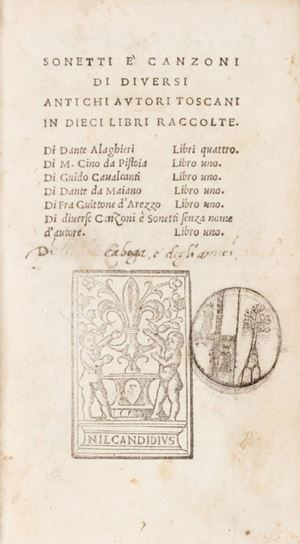 SONETTI È CANZONI
DI DIVERSI
ANTICHI AVTORI TOSCANI
IN DIECI LIBRI RACCOLTE.
Di Dante Alaghieri Libri quattro.
Di M. Cino da Pistoia Libro uno.
Di Guido Caualcanti Libro uno.
Di Dante da Maiano Libro uno.
Di Fra Guittone d'Arezzo Libro uno.
Di diuerse Canzoni è Sonetti senza nome
d'autore. Libro uno.
Di caboga, e degli amici
NIL CANDIDIVS